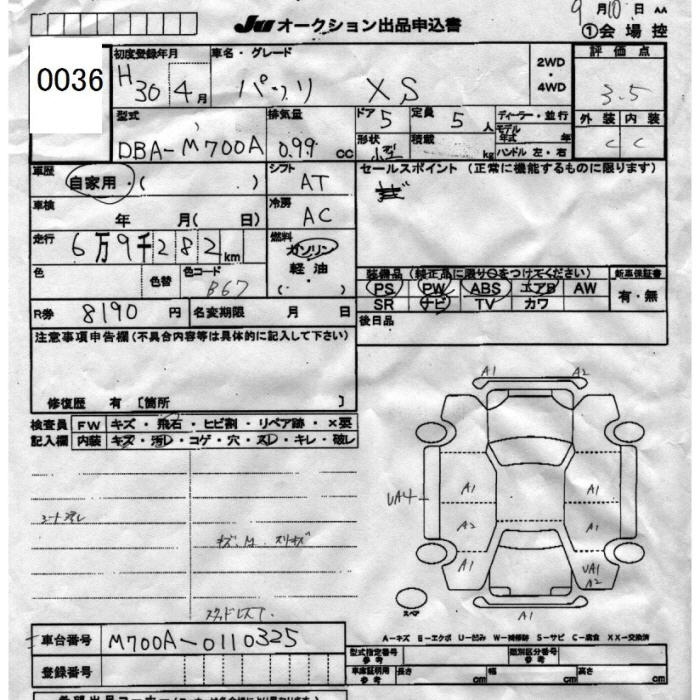 9月10日 AA
JU オークション出品申込書
①会場控
0036
初度登録年月
H30 4月
車名・グレード
パッソ XS
2WD
・
4WD
評価点
3.5
型式
DBA-M700A
排気量
0.99 CC
ドア 5
定員 5 人
形状 小型
積載 kg
ディーラー・並行
モデル年式 年
ハンドル 左・右
外装 内装
C C
車歴
自家用・( )
シフト
AT
セールスポイント (正常に機能するものに限ります)
車検
年 月( 日)
冷房
AC
走行
6万9千282km
燃料
ガソリン
・
軽油
( ・ )
色
色替
色コード
B67
装備品(純正品に限り○をつけてください)
新車保証書
PS PW ABS エアB AW
有・無
SR ナビ TV カワ
R券 8190 円
名変期限 月 日
後日品
注意事項申告欄(不具合内容等は具体的に記入して下さい)
修復歴 有 [箇所 ]
検査員記入欄
FW キズ・飛石・ヒビ割・リペア跡・×要
内装 キズ・汚レ・コゲ・穴・スレ・キレ・破レ
A1 A2
UA4
A1 A1
A2 A1
A1 UA1
A2
スペア
A1
スタッドレス
A-キズ B-エクボ U-凹み W-補修跡 S-サビ C-腐食 XX-交換済
車台番号 M700A-0110325
型式指定番号
参考
類別区分番号
参考
登録番号
車庫証明用
参考
長さ cm 幅 cm 高さ cm